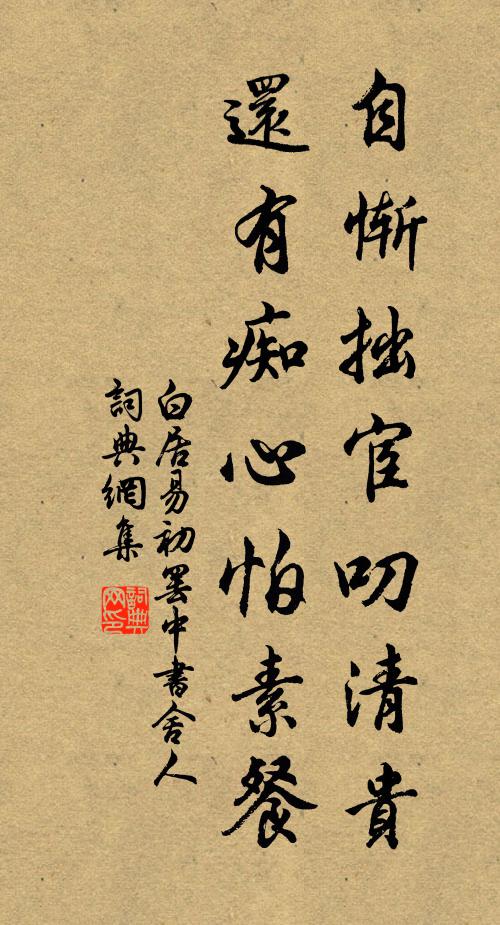 自慚拙宦叨清貴
還有痴心怕素餐
白居易初罢中書舍人
詞典網集
詞典
网印